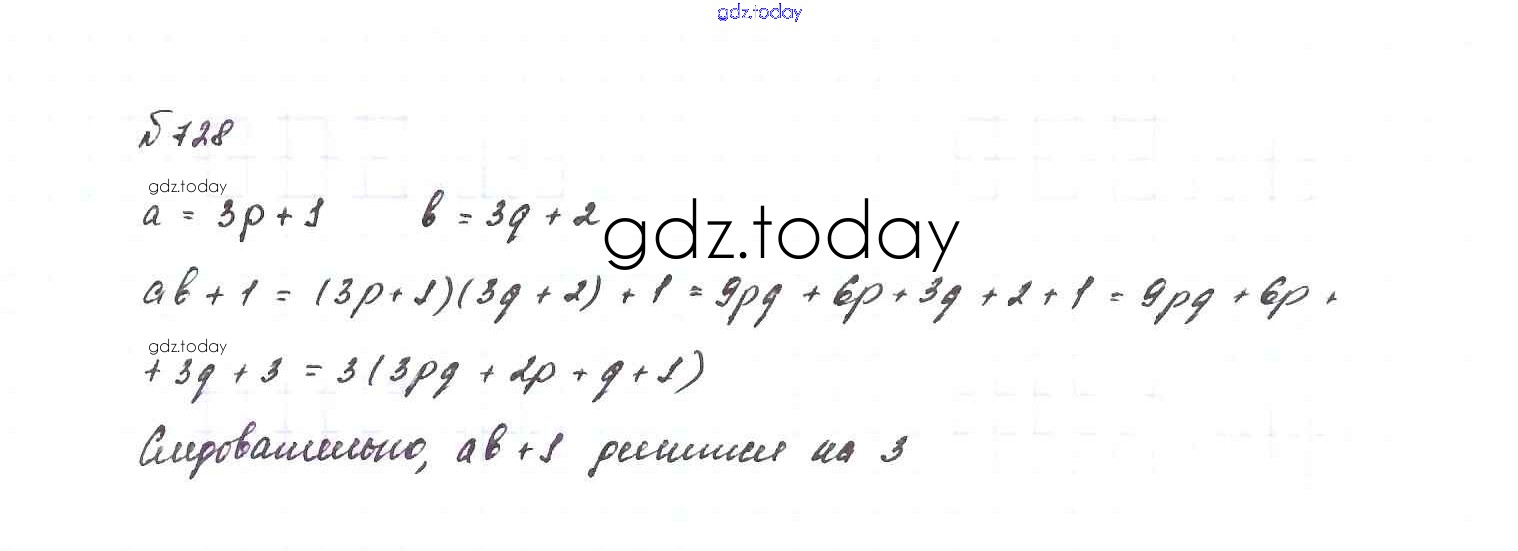 gdz.today
№ 728
gdz.today
a = 3p + 1 b = 3q + 2
gdz.today
ab + 1 = (3p + 1)(3q + 2) + 1 = 9pq + 6p + 3q + 2 + 1 = 9pq + 6p +
gdz.today
+ 3q + 3 = 3(3pq + 2p + q + 1)
Следовательно, ab + 1 делится на 3